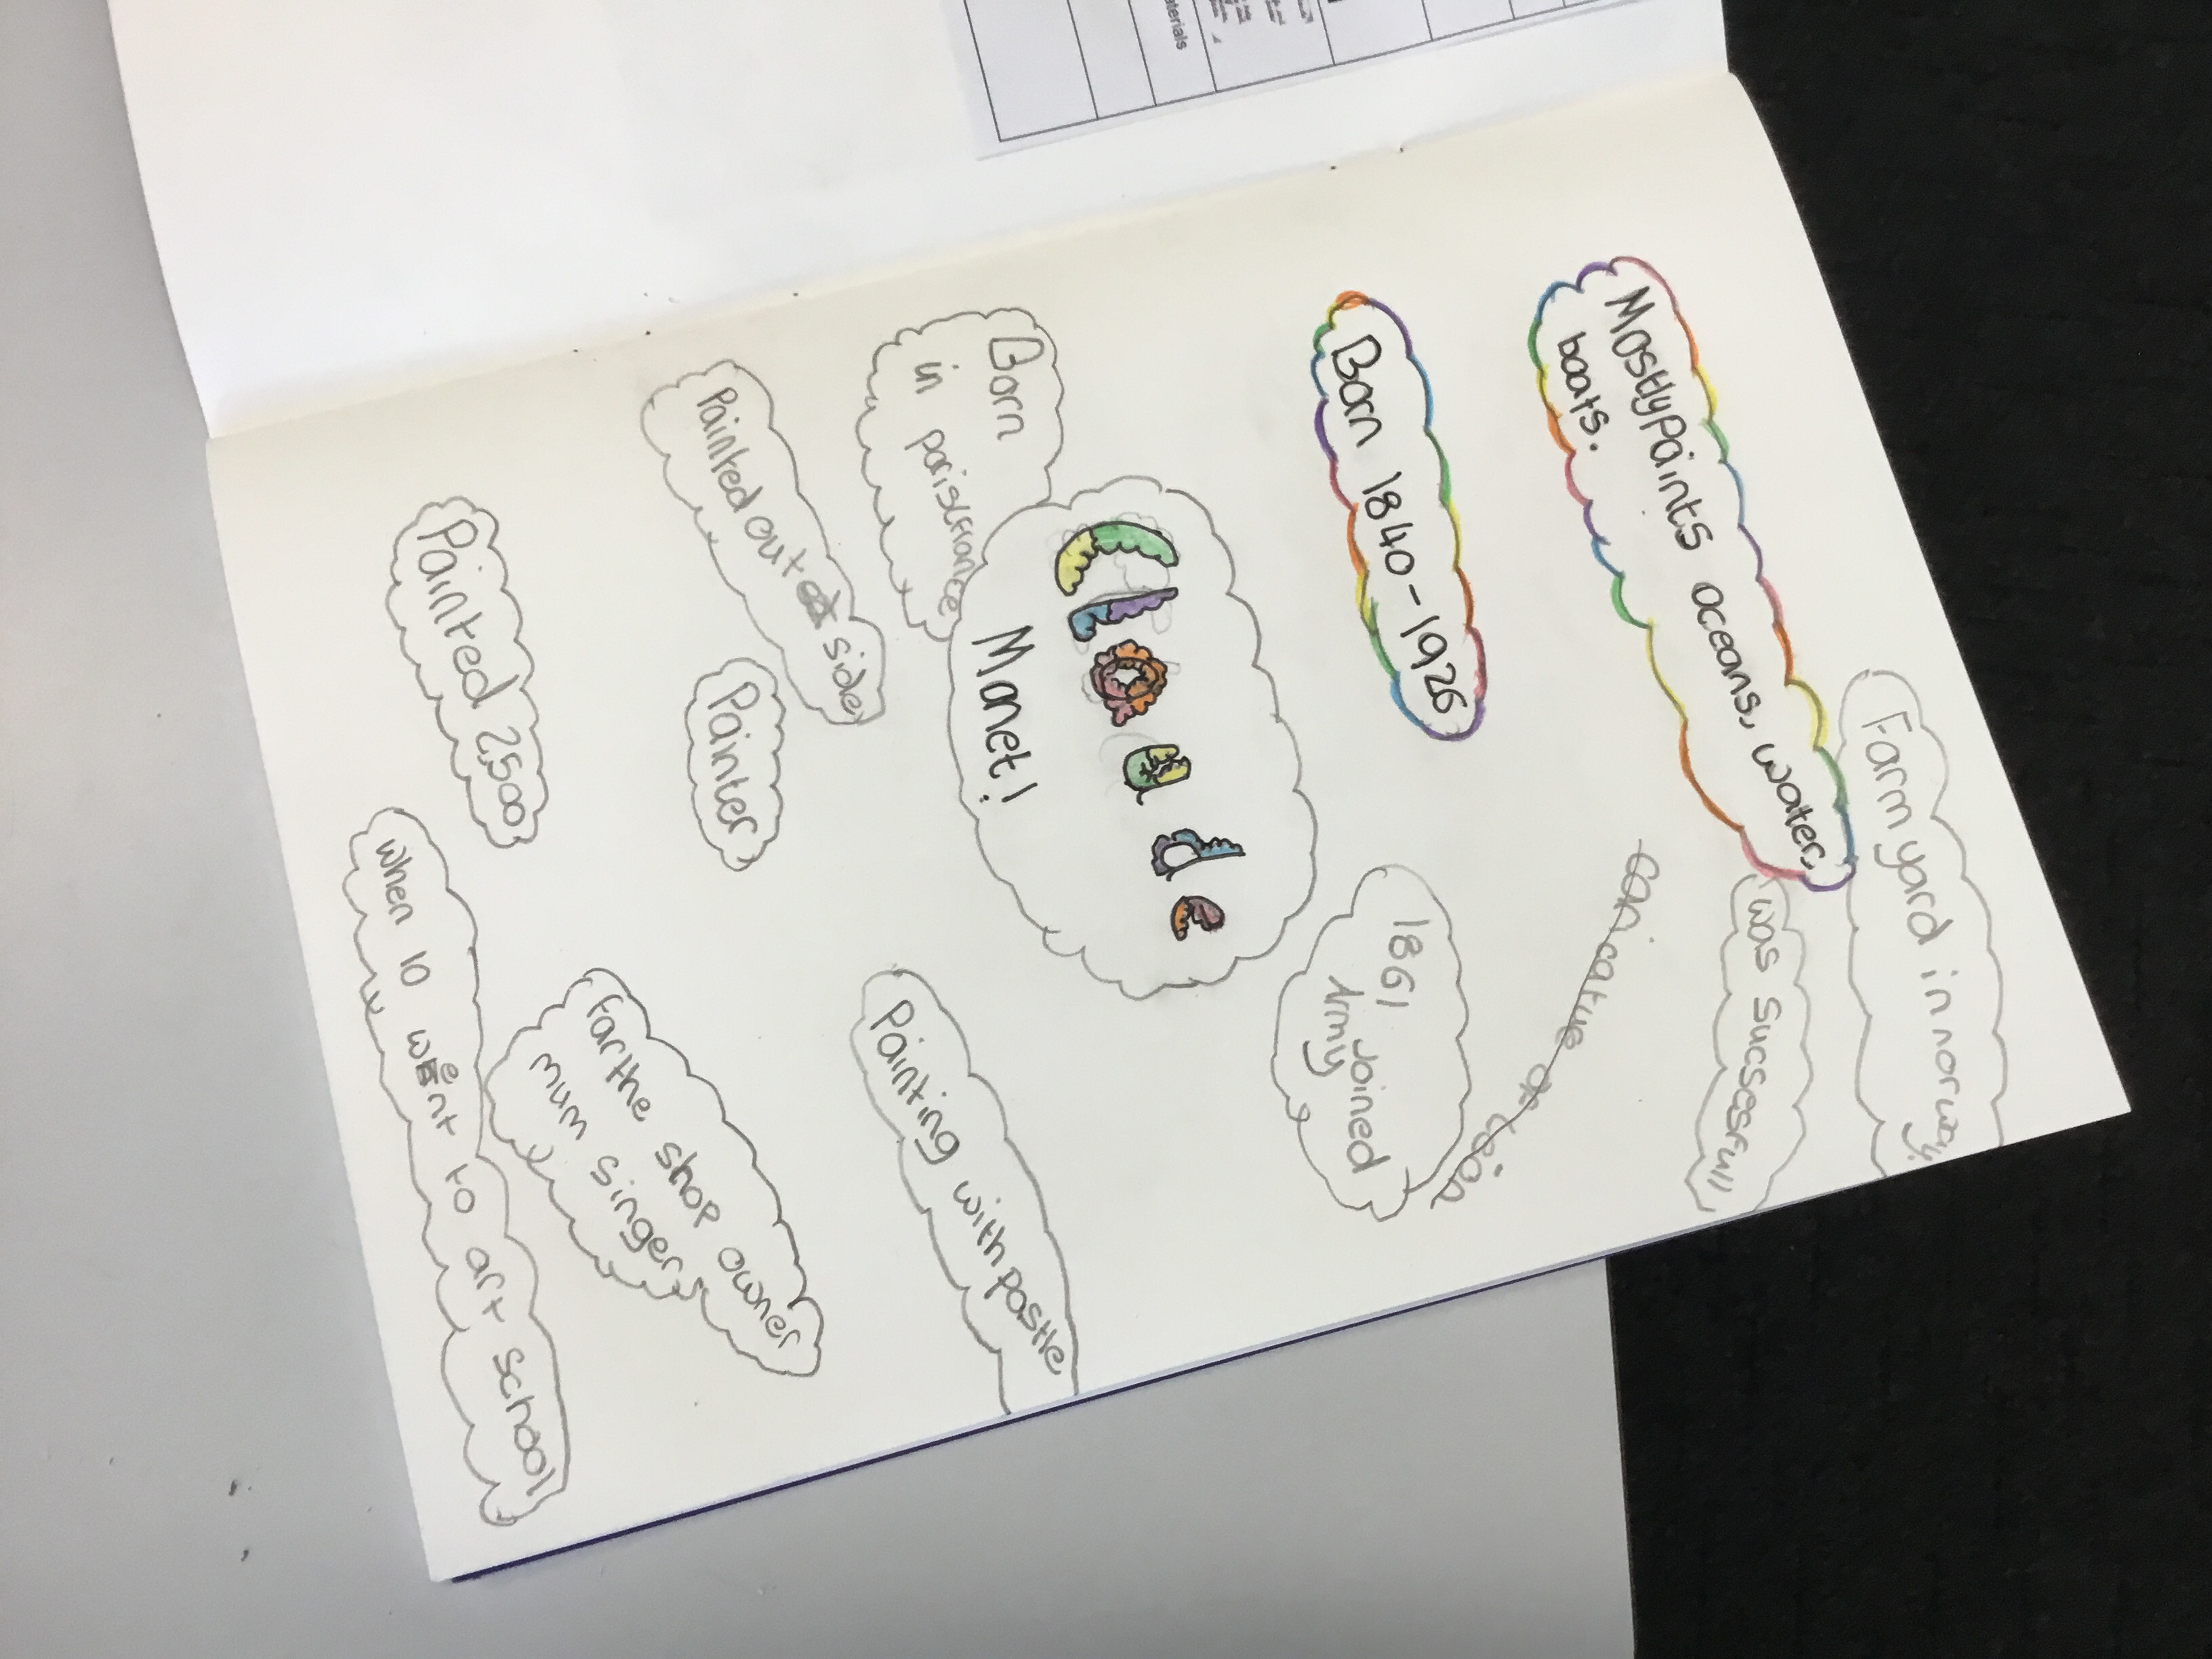 Farm yard in norway
Mostly Paints oceans, water,
boats.
was sucsessfull
Born 1840-1926
1861 Joined
Army
Born
in paris/france
Claude
Monet!
Painted out side
Painter
Painting with pastle
Painted 2,500
Farthe shop owner
mum singer
when 10 went to art school
aterials